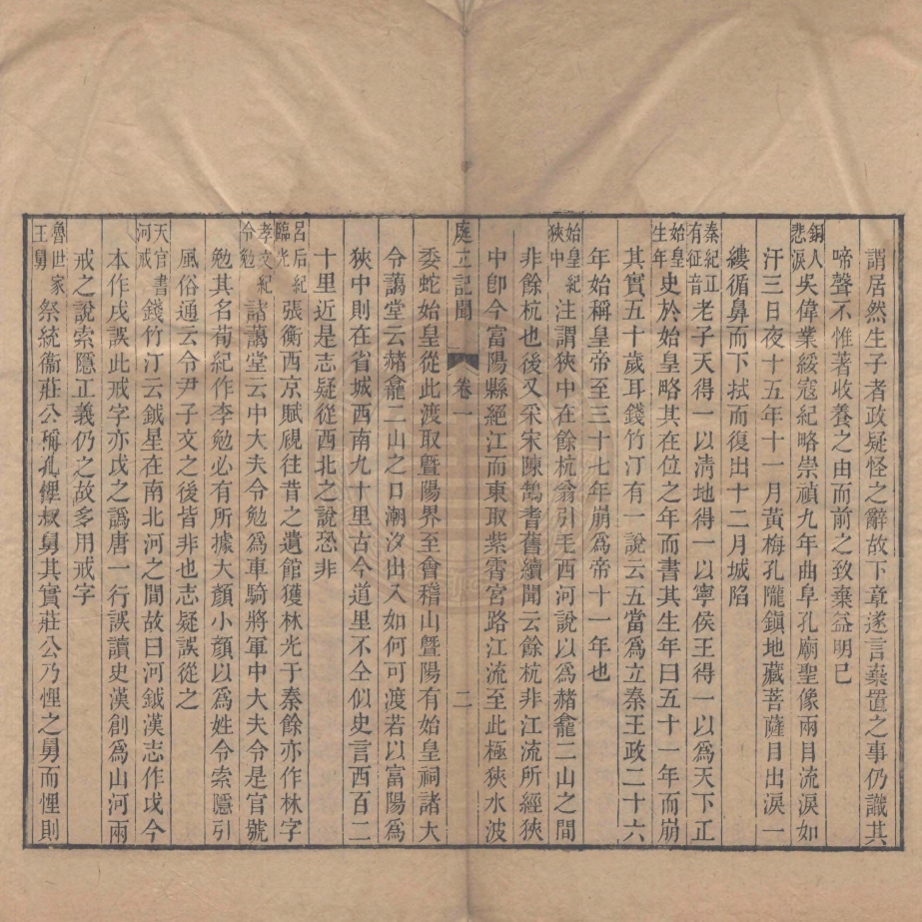 謂居然生子者政疑怪之辭故下章遂言棄置之事仍識其
啼聲不惟著收養之由而前之致棄益明巳
銅人悲淚吳偉業綏寇紀略崇禎九年曲阜孔廟聖像兩目流淚如
汗三日夜十五年十一月黃梅孔隴鎭地藏菩薩目出淚一
縷循鼻而下拭而復出十二月城陷
秦紀正有征音老子天得一以淸地得一以寧侯王得一以爲天下正
始皇生年史於始皇略其在位之年而書其生年曰五十一年而崩
其實五十歲耳錢竹汀有一說云五當爲立秦王政二十六
年始稱皇帝至三十七年崩爲帝十一年也
始皇紀狹中注謂狹中在餘杭翁引毛西河說以爲赭龕二山之間
非餘杭也後又采宋陳鵠耆舊續聞云餘杭非江流所經狹
中卽今富陽縣絕江而東取紫霄宮路江流至此極狹水波
庭立記聞 卷一 二
委蛇始皇從此渡取暨陽界至會稽山暨陽有始皇祠諸大
令藹堂云赭龕二山之口潮汐出入如何可渡若以富陽爲
狹中則在省城西南九十里古今道里不仝似史言西百二
十里近是志疑從西北之說恐非
呂后紀臨光張衡西京賦覛往昔之遺館獲林光于秦餘亦作林字
孝文紀令勉諸藹堂云中大夫令勉爲車騎將軍中大夫令是官號
勉其名荀紀作李勉必有所據大顏小顏以爲姓令索隱引
風俗通云令尹子文之後皆非也志疑誤從之
天官書河戒錢竹汀云鉞星在南北河之間故曰河鉞漢志作戉今
本作戌誤此戒字亦戉之譌唐一行誤讀史漢創爲山河兩
戒之說索隱正義仍之故多用戒字
魯世家王舅祭統衞莊公稱孔鯉叔舅其實莊公乃悝之舅而悝則